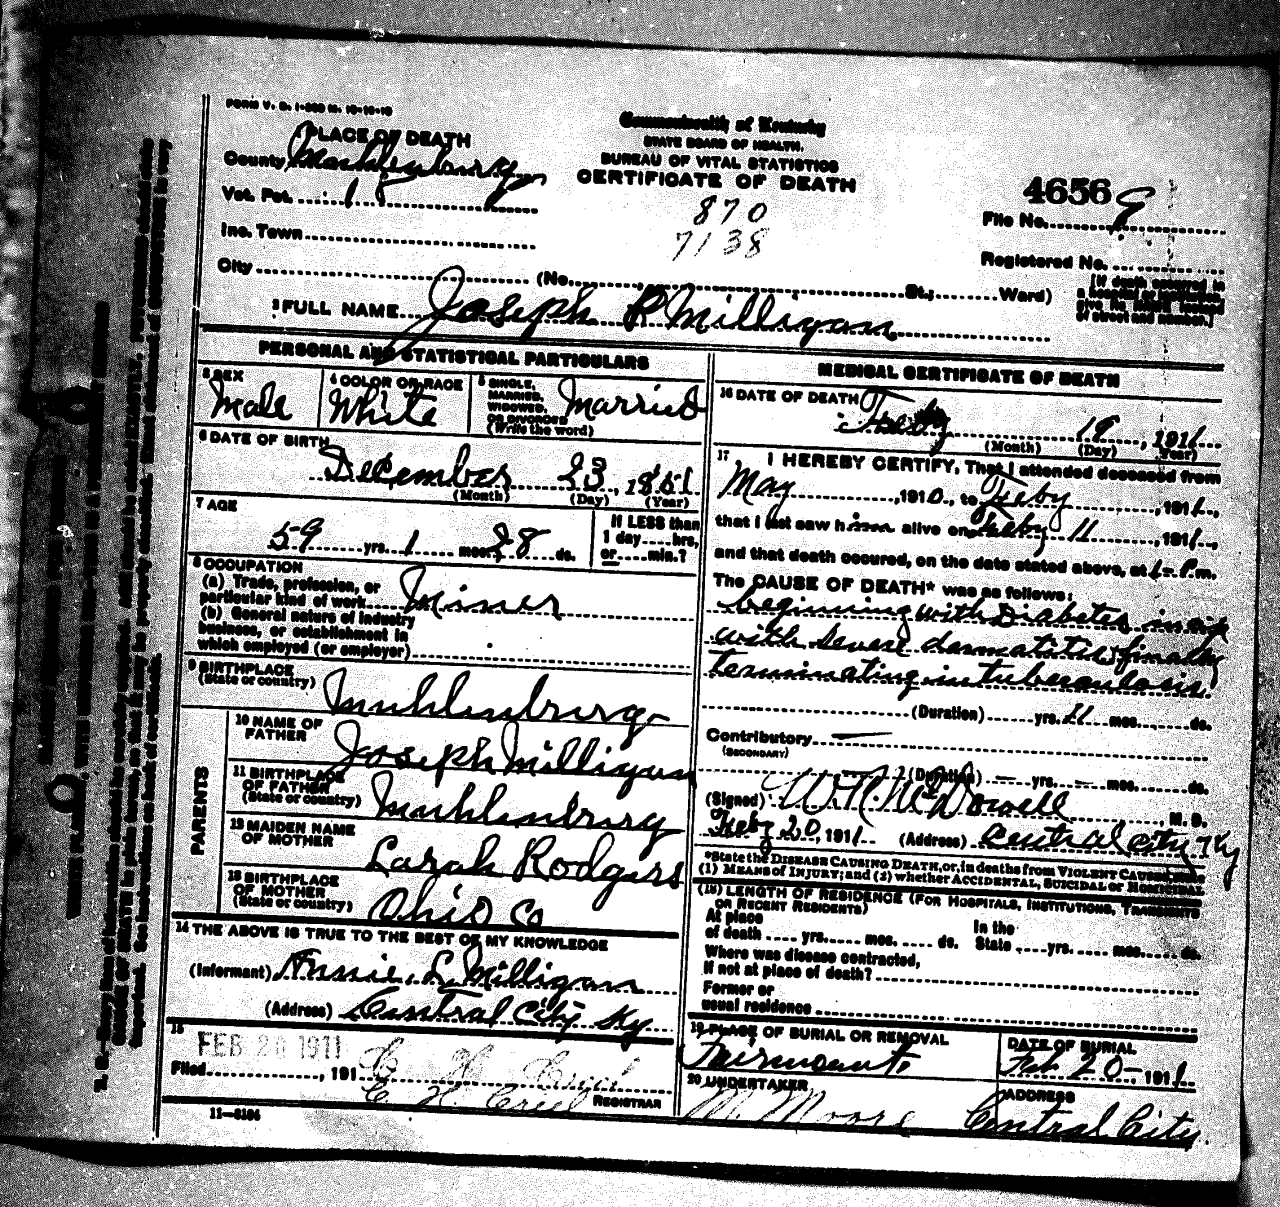 FORM V. S. 1-
PLACE OF DEATH
County Muhlenburg
Vot. Pct. 18
Inc. Town
City (No. St.; Ward)
Commonwealth of Kentucky
STATE BOARD OF HEALTH.
BUREAU OF VITAL STATISTICS
CERTIFICATE OF DEATH
870
7138
4656
File No. 9
Registered No.
[If death occurred in
a Hospital or Institution,
give its NAME instead
of street and number.]
2 FULL NAME Joseph P Milligan
PERSONAL AND STATISTICAL PARTICULARS
3 SEX
Male
4 COLOR OR RACE
White
5 SINGLE,
MARRIED,
WIDOWED,
OR DIVORCED
(Write the word)
Married
6 DATE OF BIRTH
December 23, 1851
(Month) (Day) (Year)
7 AGE
59 yrs. 1 mos. 28 ds.
If LESS than
1 day hrs,
or min.?
8 OCCUPATION
(a) Trade, profession, or
particular kind of work Miner
(b) General nature of industry
business, or establishment in
which employed (or employer)
9 BIRTHPLACE
(State or country) Muhlenburg
PARENTS
10 NAME OF
FATHER Joseph Milligan
11 BIRTHPLACE
OF FATHER
(State or country) Muhlenburg
12 MAIDEN NAME
OF MOTHER Sarah Rodgers
13 BIRTHPLACE
OF MOTHER
(State or country) Ohio Co
14 THE ABOVE IS TRUE TO THE BEST OF MY KNOWLEDGE
(Informant) Annie L Milligan
(Address) Central City Ky
15
FEB 20 1911
Filed , 191
REGISTRAR
11—3184
MEDICAL CERTIFICATE OF DEATH
16 DATE OF DEATH
Feby 19, 1911
(Month) (Day) (Year)
17 I HEREBY CERTIFY, That I attended deceased from
May , 1910, to Feby , 1911,
that I last saw him alive on Feby 11 , 1911,
and that death occured, on the date stated above, at 1 P.m.
The CAUSE OF DEATH* was as follows:
beginning with Diabetes
with severe dermatitis finally
terminating in tuberculosis
(Duration) yrs. 11 mos. ds.
Contributory —
(SECONDARY)
(Duration) — yrs. — mos. ds.
(Signed) W.R. McDowell , M. D.
Feby 20, 1911 (Address) Central City Ky
*State the DISEASE CAUSING DEATH, or, in deaths from VIOLENT CAUSES, state
(1) MEANS OF INJURY; and (2) whether ACCIDENTAL, SUICIDAL or HOMICIDAL
(18) LENGTH OF RESIDENCE (FOR HOSPITALS, INSTITUTIONS, TRANSIENTS
OR RECENT RESIDENTS)
At place In the
of death yrs. mos. ds. State yrs. mos. ds.
Where was disease contracted,
if not at place of death?
Former or
usual residence
19 PLACE OF BURIAL OR REMOVAL
Fairmount
DATE OF BURIAL
Feb 20— 1911
20 UNDERTAKER
M. Moore
ADDRESS
Central City